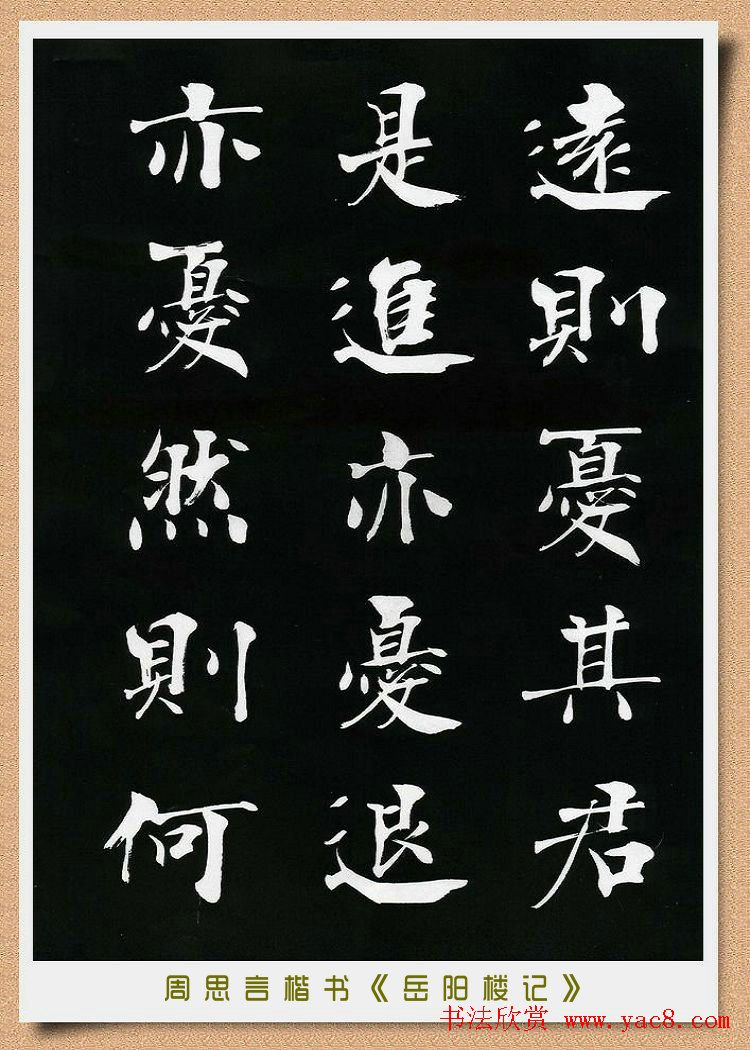 遠則憂其君
是進亦憂退
亦憂然則何
周思言楷书《岳阳楼记》
书法欣赏 www.yac8.com